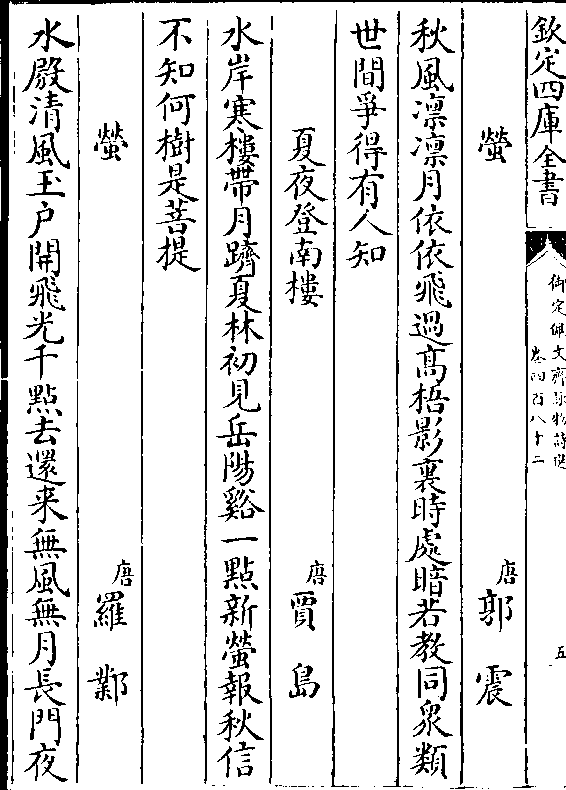 欽定四庫全書
御定佩文齋詠物詩選
卷四百八十二
五
螢
唐郭震
秋風凛凛月依依飛過高梧影裏時處暗若教同衆類
世間爭得有人知
夏夜登南樓
唐賈島
水岸寒樓帶月躋夏林初見岳陽谿一點新螢報秋信
不知何樹是菩提
螢
唐羅鄴
水殿清風玉户開飛光千點去還来無風無月長門夜